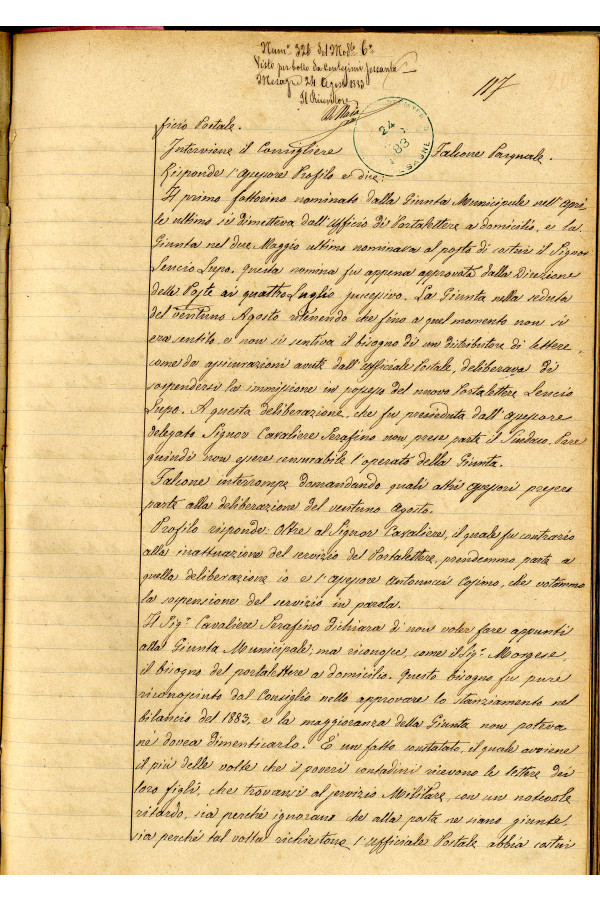 Num.º 326 del Mod.º 6º
Visto per bollo da Centesimi Sessanta
Mesagne 24 Agosto 1883
Il Ricevitore
117
24
83
ficio Postale.
Interviene il Consigliere Falcone Pasquale.
Risponde l'Assessore Profilo e dice:
Il primo fattorino nominato dalla Giunta Municipale nell'Apri-
le ultimo si dimetteva dall'Ufficio di Portalettere a domicilio, e la
Giunta nel due Maggio ultimo nominava al posto di costui il Signor
Lencio Lupo. Questa nomina fu appena approvata dalla Direzione
delle Poste ai quattro Luglio successivo. La Giunta nella seduta
del ventuno Agosto ritenendo che fino a quel momento non si
era sentito e non si sentiva il bisogno di un distributore di lettere,
come da assicurazioni avute dall'Ufficiale Postale, deliberava di
sospendersi la immissione in possesso del nuovo Portalettere Lencio
Lupo. A questa deliberazione, che fu presieduta dall'Assessore
delegato Signor Cavaliere Serafino non prese parte il Sindaco. Pare
quindi non essere censurabile l'operato della Giunta.
Falcone interrompe domandando quali altri assessori presero
parte alla deliberazione del ventuno Agosto.
Profilo risponde: Oltre al Signor Cavaliere, il quale fu contrario
alla inattuazione del servizio del Portalettere, prendemmo parte a
quella deliberazione io e l'Assessore Antonucci Cosimo, che votammo
la sospensione del servizio in parola.
Il Sig.r Cavaliere Serafino dichiara di non voler fare appunti
alla Giunta Municipale; ma riconosce, come il Sig.r Morgese,
il bisogno del portalettere a domicilio. Questo bisogno fu pure
riconosciuto dal Consiglio nello approvare lo stanziamento nel
bilancio del 1883, e la maggioranza della Giunta non poteva
nè dovea dimenticarlo. È un fatto constatato, il quale avviene
il più delle volte che i poveri contadini ricevono le lettere dei
loro figli, che trovansi al servizio Militare, con un notevole
ritardo, sia perchè ignorano che alla posta ne siano giunte,
sia perchè tal volta richiestone l'Ufficiale Postale abbia costui